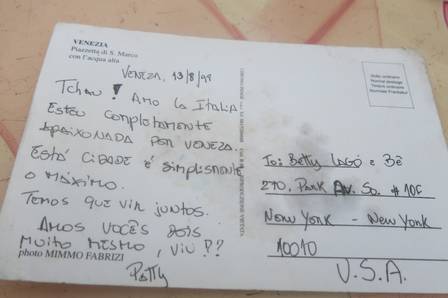 VENEZIA
Piazzetta di S. Marco
con l'acqua alta
VENEZA, 13/8/98
Tchau! Amo la Italia
Estou completamente
apaixonada por Veneza.
Está cidade é simplismente
o máximo.
Temos que vir juntos.
Amos vocês dois
muito mesmo, viu??
Patty
photo MIMMO FABRIZI
To: Betty Lagó e Bê
270, Park Av. So. # 10C
New York - New York
10010
U.S.A.